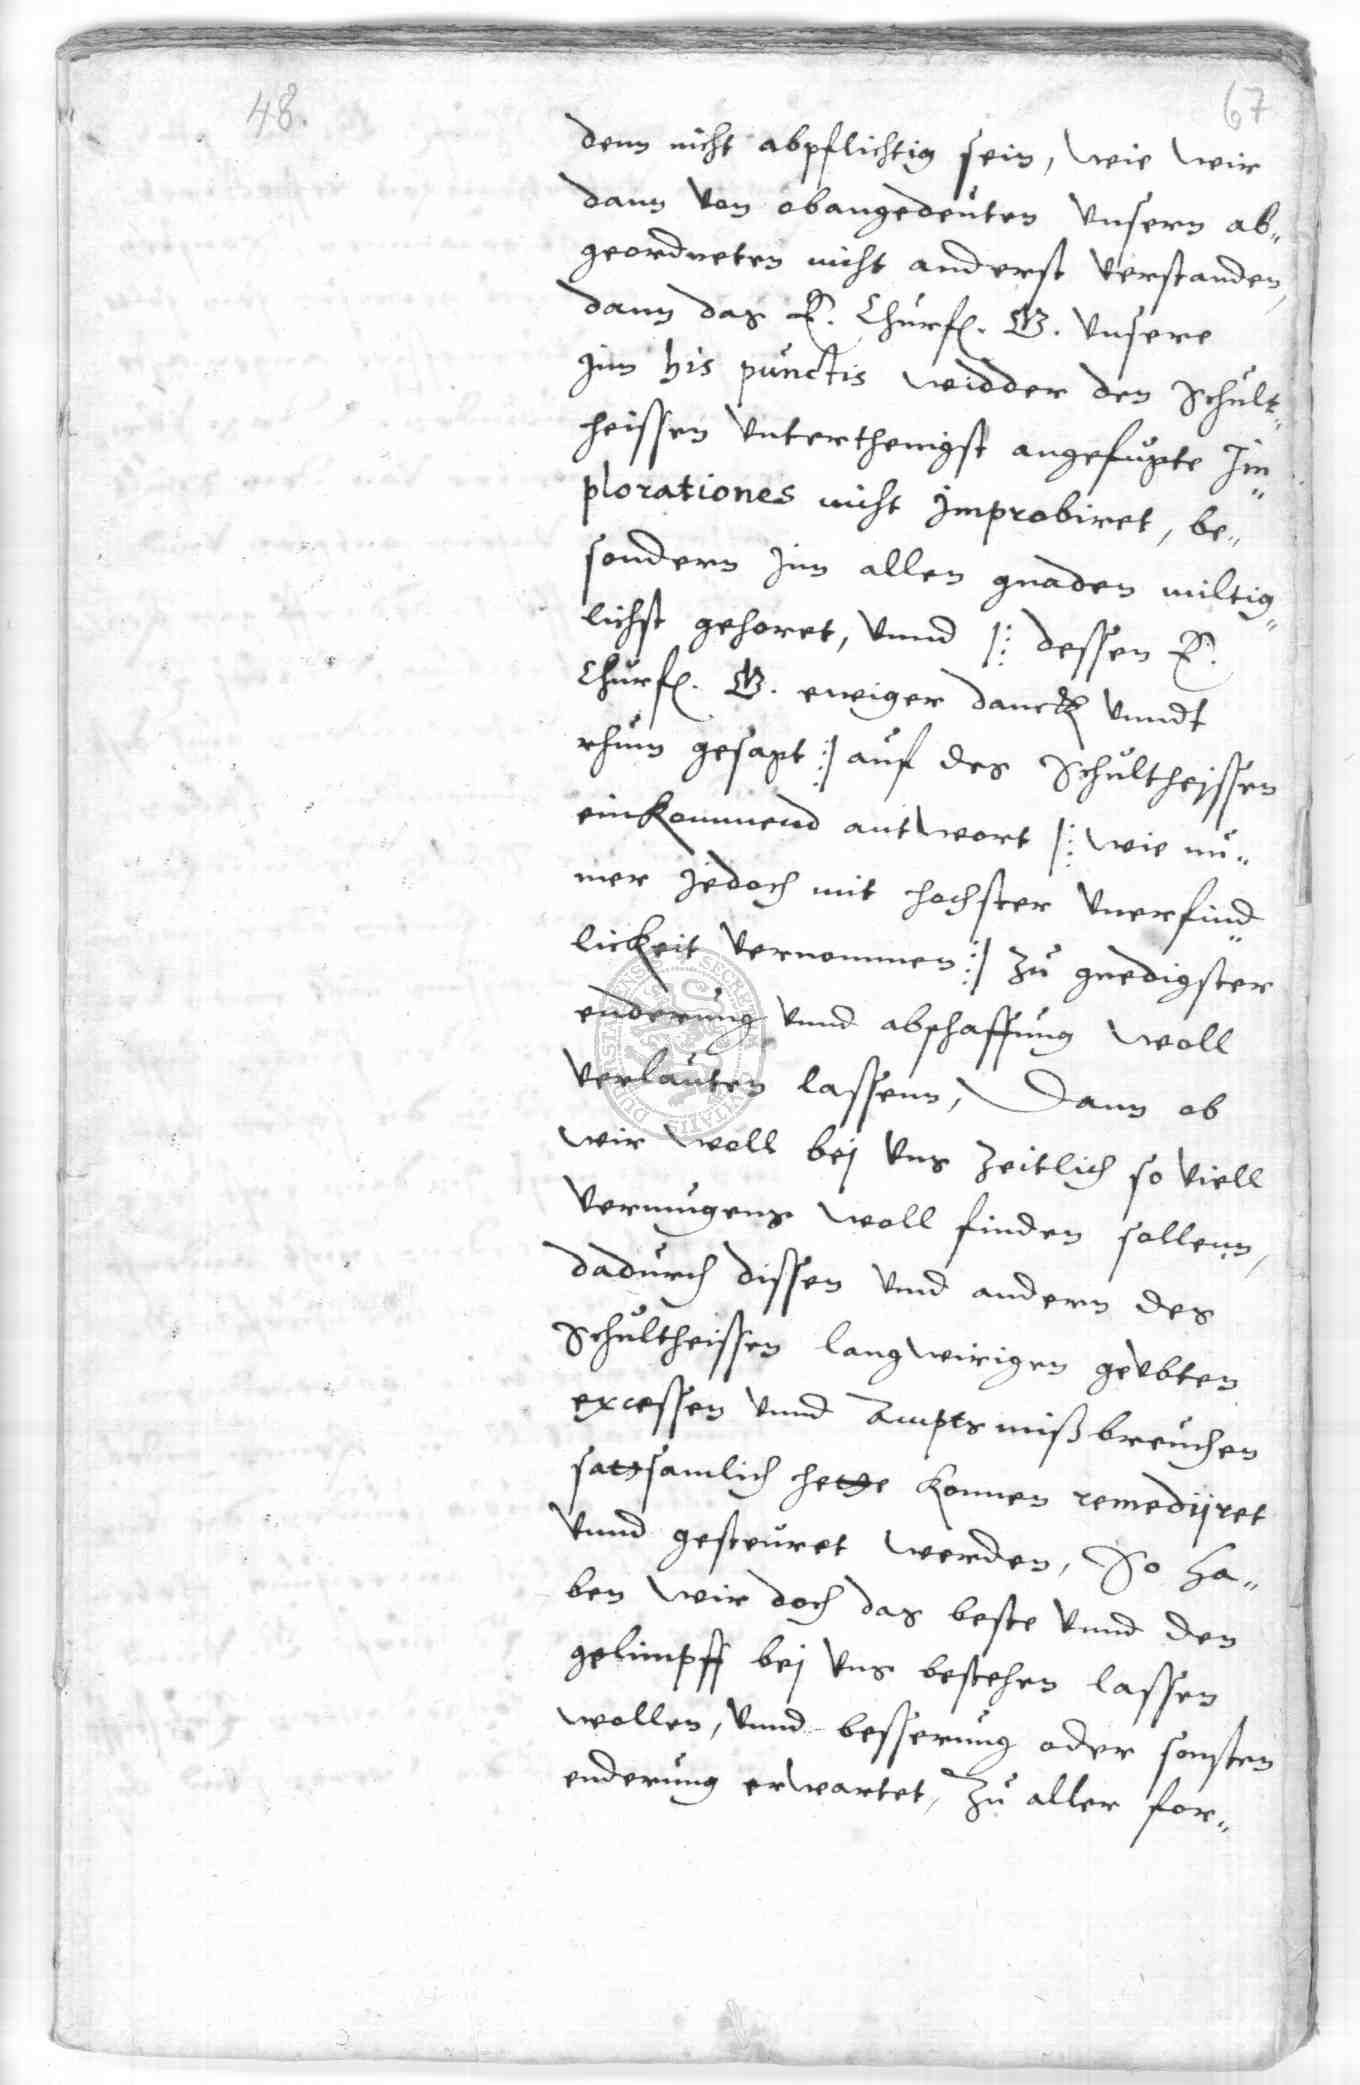 48.
67
denn nicht abpflichtig sein, wie wir
dann von obangedeuten unsern ab„
geordneten nicht anderst verstanden,
dann das E. Churf. G. unsere
Inn his punctis widder den Schult„
heissen unterthenigst angesuchte Im„
plorationes nicht improbiret, be„
sondern Inn allen gnaden miltig„
lichst gehoret, unnd |: dessen E.
Churf. G. ewiger danck unndt
rhum gesagt :| auf des Schultheissen
einkommend antwort |: wie nu„
mer Jedoch mit hochster unerfind„
lickeit vernommen :| zu gnedigster
enderung unnd abschaffung woll
verlauten lassenn, Dann ob
wir woll bej uns zeitlich so viell
vermugens woll finden sollenn,
dadurch dissen unnd andern des
Schultheissen langwirigen geubten
excessen unnd Ampts mißbreuchen
sattsamlich hette konnen remedijret
unnd gesteuret werden, So ha„
ben wir doch das beste unnd den
gelimpff bej uns bestehen lassen
wollen, unnd besserung oder sonsten
enderung erwartet, Zu aller for„